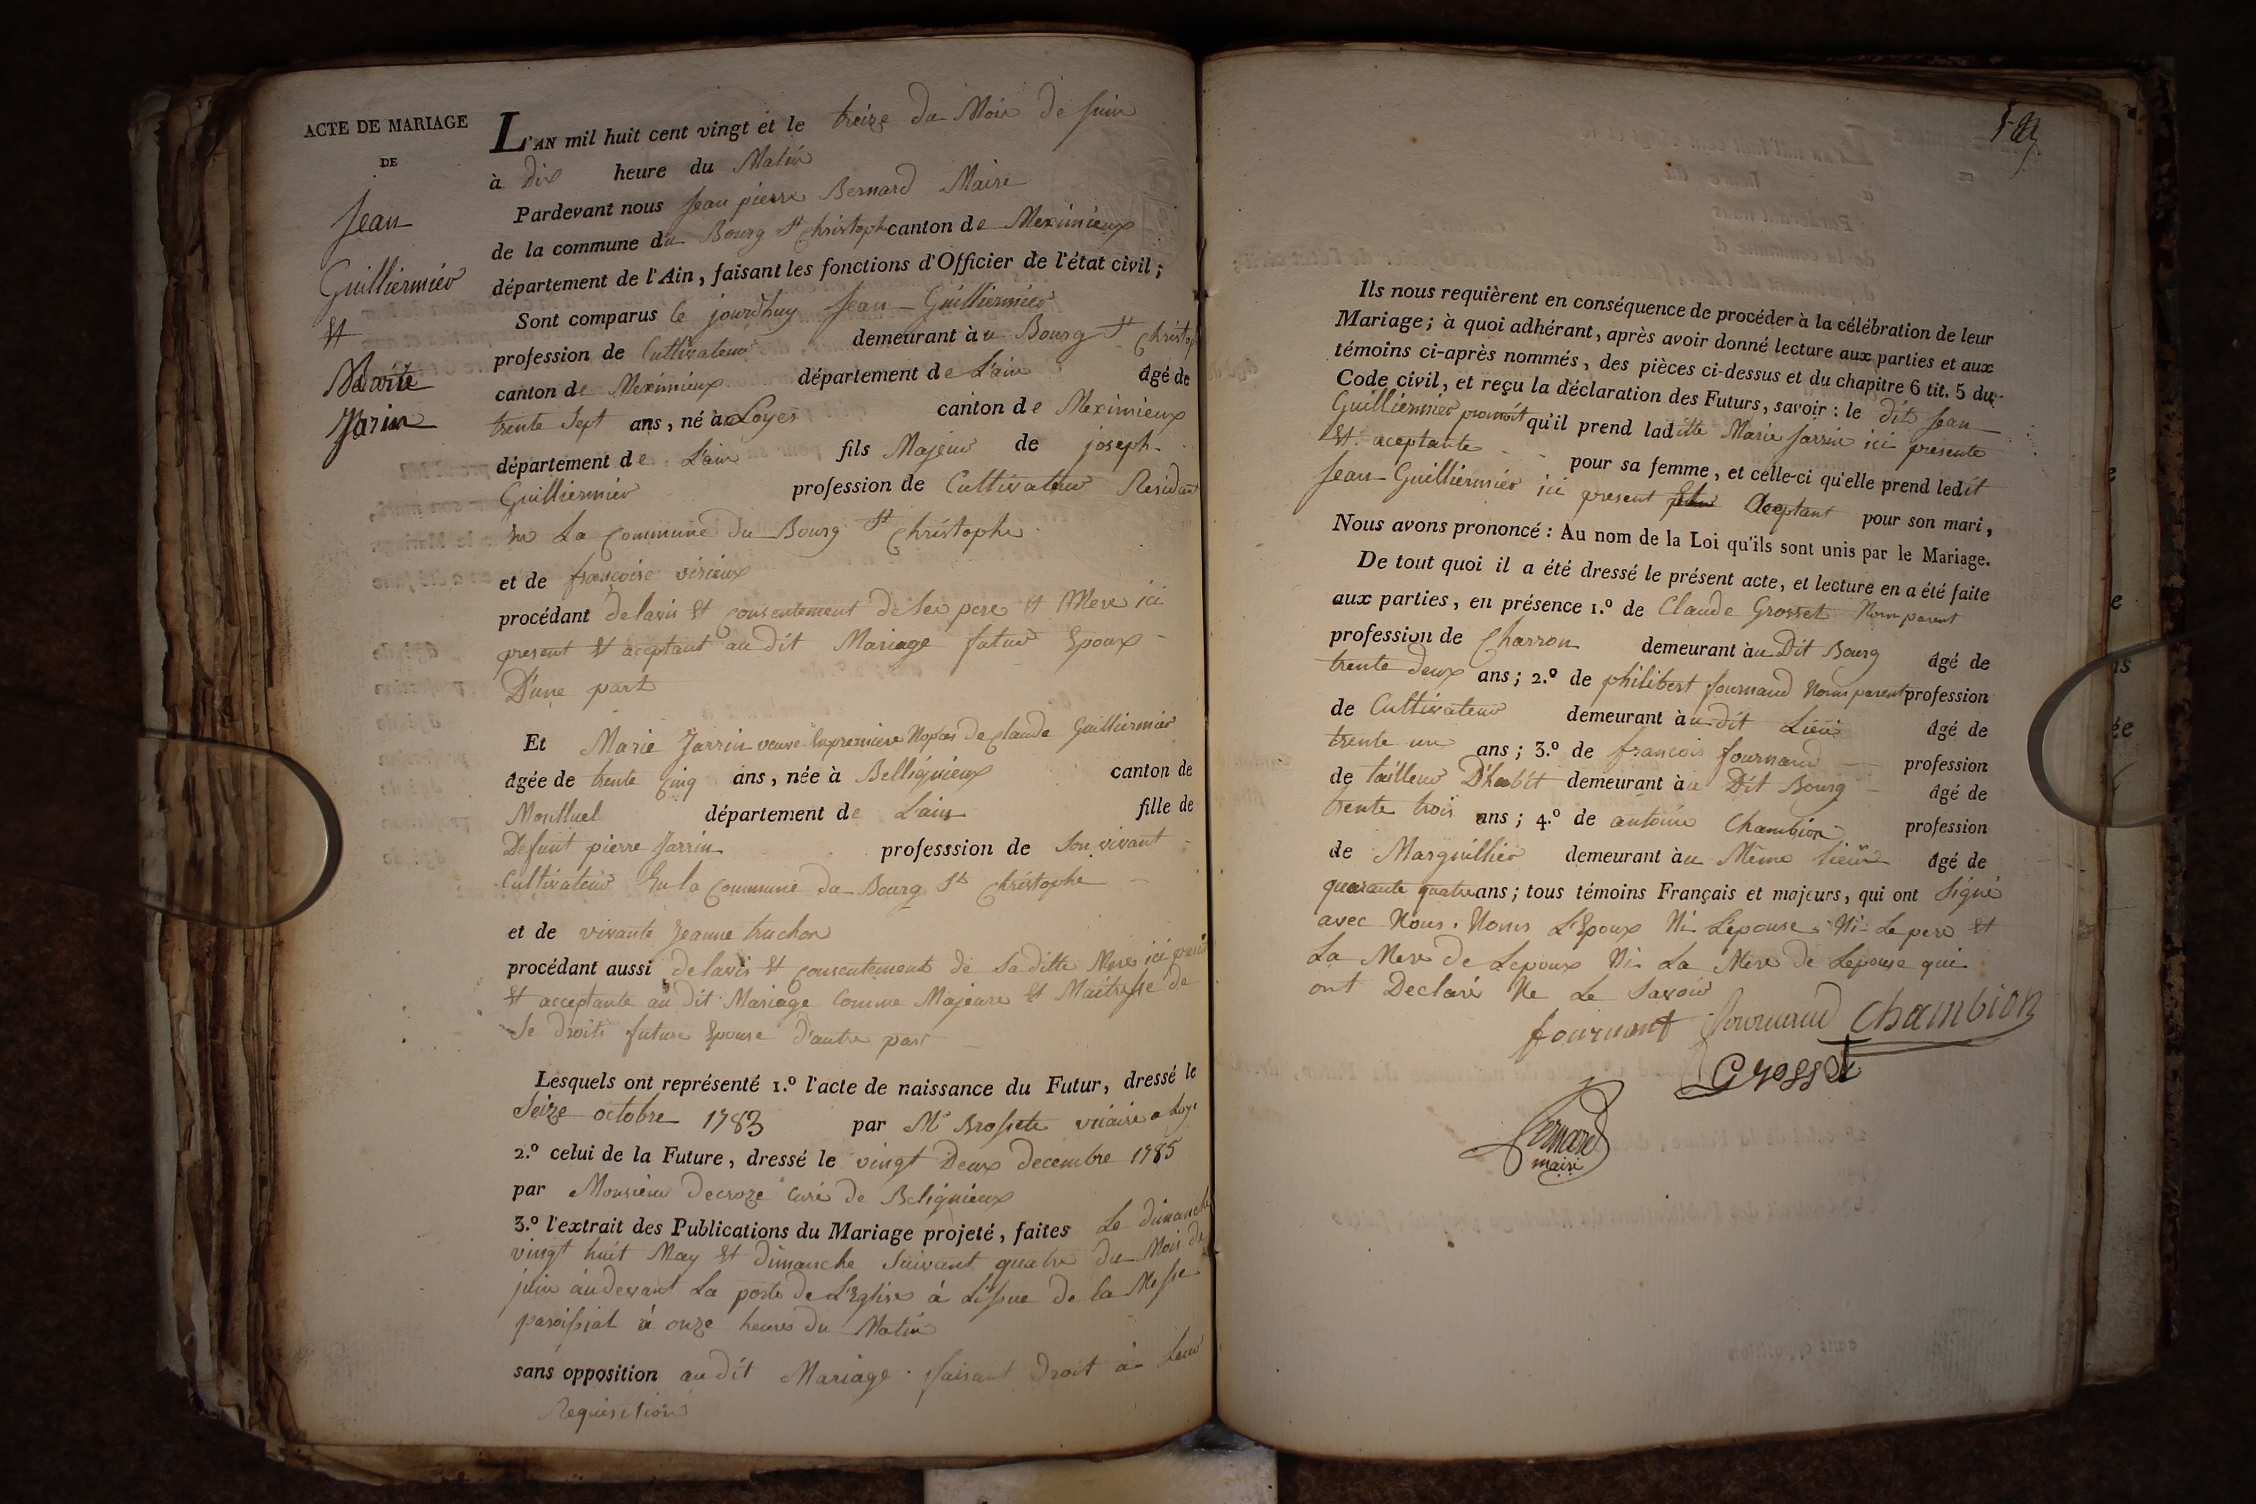 ACTE DE MARIAGE
DE
Jean
Guilliermier
Et
Marie
Jarrin
L'AN mil huit cent vingt et le treize du Mois de juin
à Dix heure du Matin
Pardevant nous Jean pierre Bernard Maire
de la commune du Bourg St Christophe canton de Meximieux
département de l'Ain, faisant les fonctions d'Officier de l'état civil;
Sont comparus le jourdhuy Jean Guilliermier
profession de Cultivateur demeurant au Bourg St Christop
canton de Meximieux département de L'ain âgé de
trente Sept ans, né à Loyes canton de Meximieux
département de L'ain fils Majeur de joseph
Guilliermier profession de Cultivateur Residant
en La Commune du Bourg St Christophe
et de françoise virieux
procédant de lavis Et consentement de Ses pere Et Mere ici
present Et acceptant au dit Mariage futur Epoux
D'une part
Et Marie Jarrin veuve En premiere Nopces de Claude Guilliermier
âgée de trente Cinq ans, née à Bellignieux canton de
Montluel département de L'ain fille de
Defunt pierre Jarrin professsion de Son vivant
Cultivateur En la Commune du Bourg St Christophe
et de vivante Jeanne truchon
procédant aussi de lavis Et consentement de Sa ditte Mere ici
Et acceptante au dit Mariage Comme Majeure Et Maitresse de
Se droits future Epouse d'autre part
Lesquels ont représenté 1.º l'acte de naissance du Futur, dressé le
Seize octobre 1783 par Mr Brossete vicaire a Loye
2.º celui de la Future, dressé le vingt Deux decembre 1785
par Monsieur decroze Curé de Belignieux
3.º l'extrait des Publications du Mariage projeté, faites Le dimanche
vingt huit May Et dimanche Suivant quatre du Mois de
juin au devant La porte de L'Eglise à L'issue de la Messe
paroissial à onze heures du Matin
sans opposition au dit Mariage faisant Droit à Leur
Requisition
Ils nous requièrent en conséquence de procéder à la célébration de leur
Mariage; à quoi adhérant, après avoir donné lecture aux parties et aux
témoins ci-après nommés, des pièces ci-dessus et du chapitre 6 tit. 5 du
Code civil, et reçu la déclaration des Futurs, savoir: le dit Jean
Guilliermier promoit qu'il prend laditte Marie Jarrin ici presente
Et aceptante pour sa femme, et celle-ci qu'elle prend ledit
Jean Guilliermier ici present Aceptant pour son mari,
Nous avons prononcé: Au nom de la Loi qu'ils sont unis par le Mariage.
De tout quoi il a été dressé le présent acte, et lecture en a été faite
aux parties, en présence 1.º de Claude Grosset Nom parent
profession de Charron demeurant au Dit Bourg âgé de
trente deux ans; 2.º de philibert fournand Nom parent profession
de Cultivateur demeurant au dit Lieu âgé de
trente un ans; 3.º de francois fournand profession
de tailleur D'habit demeurant au Dit Bourg âgé de
trente trois ans; 4.º de antoine Chambion profession
de Marguillier demeurant au Même Lieu âgé de
quarante quatre ans; tous témoins Français et majeurs, qui ont Signé
avec Nous. Nom L'Epoux Ni L'épouse Ni Le pere Et
La Mere de Lepoux Ni La Mere de Lepouse qui
ont Declaré Ne Le Savoir
fournant fournand Chambion
Grosset
Bernard
maire